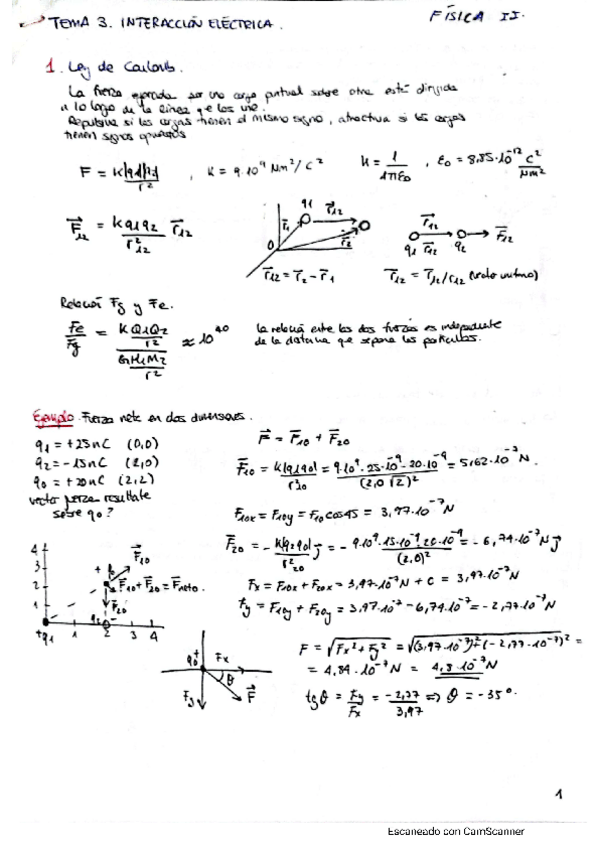 TEMA 3. INTERACCIÓN ELÉCTRICA.
FÍSICA II.
1. Ley de Coulomb.
La fuerza ejercida por una carga puntual sobre otra está dirigida
a lo largo de la línea que las une.
Repulsiva si las cargas tienen el mismo signo, atractiva si las cargas
tienen signos opuestos
F = K|q1||q2| / r² , K = 9·10⁹ Nm²/C² K = 1 / 4πε0 , ε0 = 8,85·10⁻¹² C²/Nm²
F⃗12 = K q1 q2 / r²12 r⃗12
q1 r⃗12
r⃗1 r⃗2
0
r⃗12 = r⃗2 - r⃗1
r⃗12
q1 r⃗12 q2 F⃗12
r⃗12 = r⃗12/r12 (vector unitario)
Relación Fg y Fe.
Fe/Fg = (K Q1Q2 / r²) / (G M1M2 / r²) ≈ 10⁴⁰
La relación entre las dos fuerzas es independiente
de la distancia que separa las partículas.
Ejemplo. Fuerza neta en dos dimensiones.
q1 = +25nC (0,0)
q2 = -15nC (2,0)
q0 = +20nC (2,2)
vector fuerza resultate
sobre q0?
F⃗ = F⃗10 + F⃗20
F⃗10 = K|q1q0| / r²10 = 9·10⁹·25·10⁻⁹·20·10⁻⁹ / (2,0√2)² = 5,62·10⁻⁷ N.
F10x = F10y = F10 cos45 = 3,97·10⁻⁷ N
F⃗20 = - K|q2q0| / r²20 j = - 9·10⁹·15·10⁻⁹·20·10⁻⁹ / (2,0)² = -6,74·10⁻⁷ N j
Fx = F10x + F20x = 3,97·10⁻⁷ N + 0 = 3,97·10⁻⁷ N
Fy = F10y + F20y = 3,97·10⁻⁷ - 6,74·10⁻⁷ = -2,77·10⁻⁷ N
F = √Fx² + Fy² = √(3,97·10⁻⁷)² + (-2,77·10⁻⁷)² =
= 4,84·10⁻⁷ N = 4,8·10⁻⁷ N
tg θ = Fy/Fx = -2,77/3,97 ⇒ θ = -35°.
4
3
2
1
F⃗10
F⃗10 + F⃗20 = F⃗neto
F⃗20
q2
+q1 1 2 3 4
q0 + Fx
θ
Fy F⃗
1
Escaneado con CamScanner